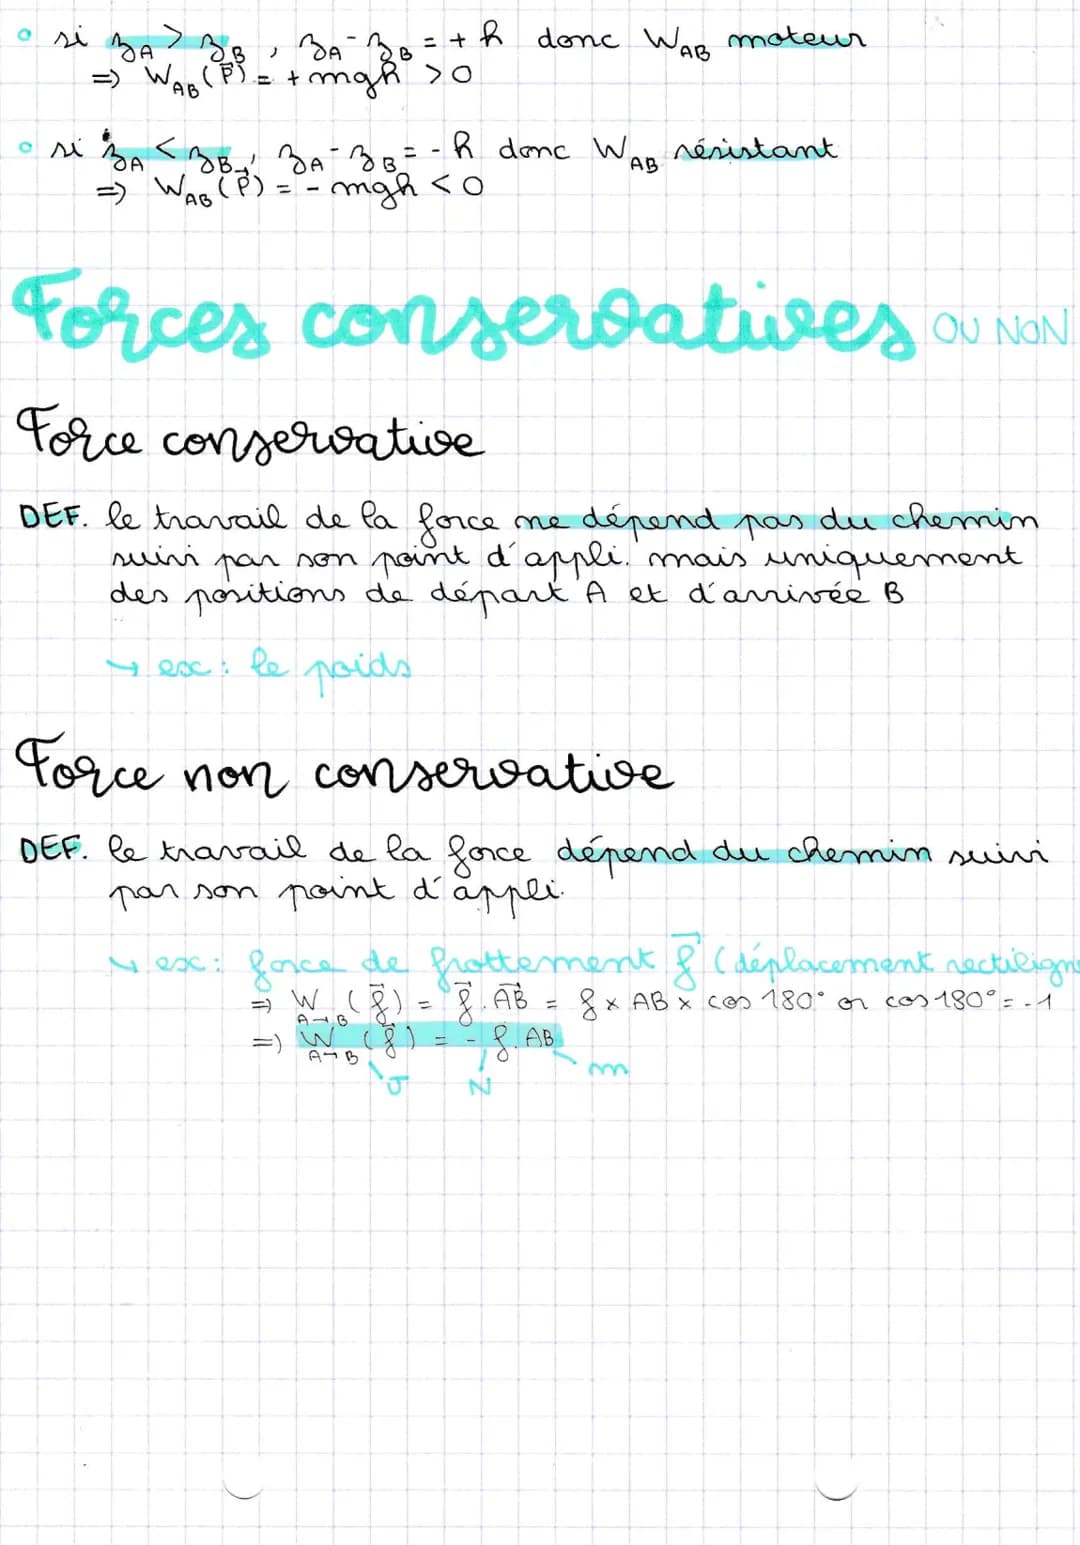 si zA > zB, zA - zB = + h donc WAB moteur
=> WAB (P⃗) = + mgh > 0
si zA < zB, zA - zB = - h donc WAB résistant
=> WAB (P⃗) = - mgh < 0
Forces conservatives OU NON
Force conservative
DEF. le travail de la force ne dépend pas du chemin
suivi par son point d'appli. mais uniquement
des positions de départ A et d'arrivée B
↳ ex : le poids
Force non conservative
DEF. le travail de la force dépend du chemin suivi
par son point d'appli.
↳ ex : force de frottement f⃗ (déplacement rectiligne
=> W A→B (f⃗) = f⃗ . AB⃗ = f x AB x cos 180° or cos 180° = -1
=> W A→B (f⃗) = - f. AB
J N m